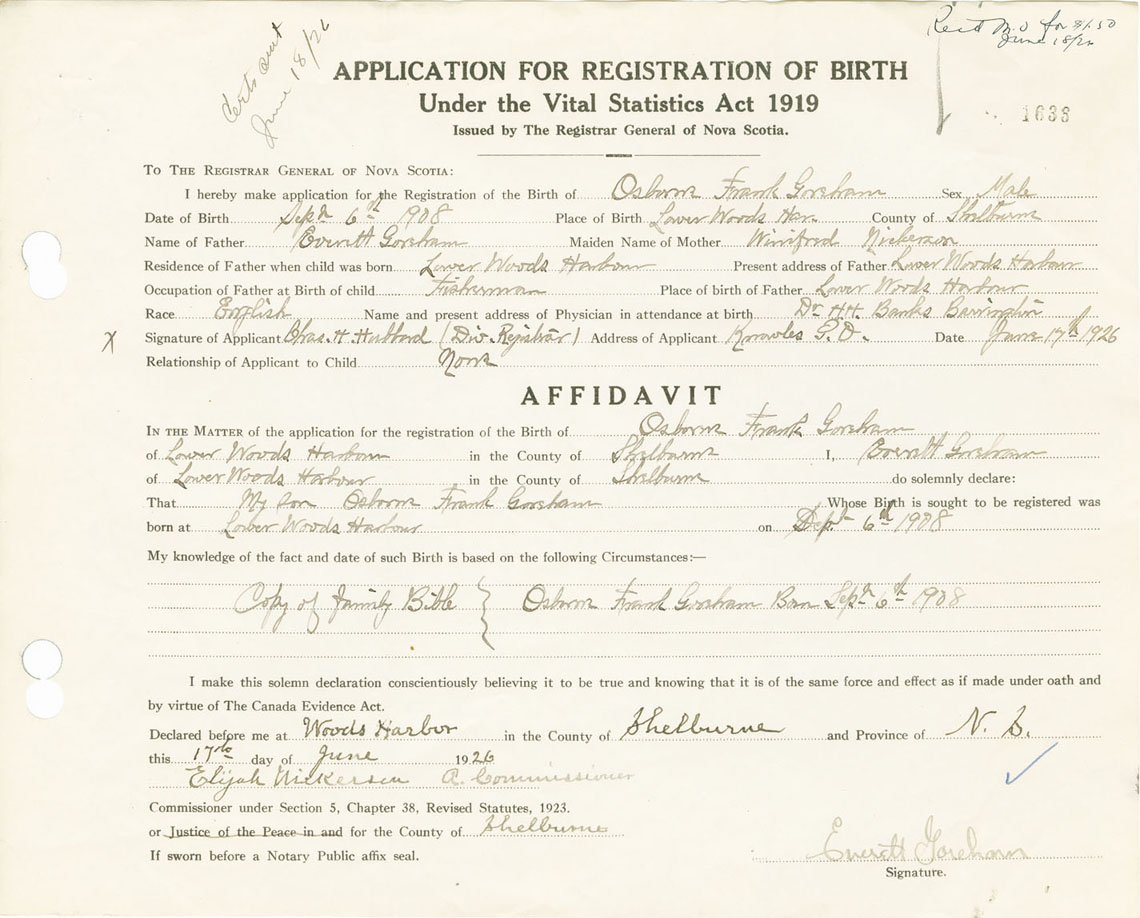 Certs out
June 18/26
Recd M.O for $1.50
June 18/26
APPLICATION FOR REGISTRATION OF BIRTH
Under the Vital Statistics Act 1919
Issued by The Registrar General of Nova Scotia.
1638
To The Registrar General of Nova Scotia:
I hereby make application for the Registration of the Birth of Osborne Frank Goreham Sex Male
Date of Birth Sept 6th 1908 Place of Birth Lower Woods Har. County of Shelburne
Name of Father Everett Goreham Maiden Name of Mother Winifred Nickerson
Residence of Father when child was born Lower Woods Harbour Present address of Father Lower Woods Harbour
Occupation of Father at Birth of child Fisherman Place of birth of Father Lower Woods Harbour
Race English Name and present address of Physician in attendance at birth Dr. H.H. Banks Barrington
X Signature of Applicant Chas. H. Hubbard (Div. Registrar) Address of Applicant Knowles G.D. Date June 17th 1926
Relationship of Applicant to Child None
AFFIDAVIT
In the Matter of the application for the registration of the Birth of Osborne Frank Goreham
of Lower Woods Harbour in the County of Shelburne I, Everett Goreham
of Lower Woods Harbour in the County of Shelburne do solemnly declare:
That My son Osborne Frank Goreham Whose Birth is sought to be registered was
born at Lower Woods Harbour on Sept 6th 1908
My knowledge of the fact and date of such Birth is based on the following Circumstances:—
Copy of Family Bible } Osborne Frank Goreham Born Sept 6th 1908
I make this solemn declaration conscientiously believing it to be true and knowing that it is of the same force and effect as if made under oath and
by virtue of The Canada Evidence Act.
Declared before me at Woods Harbor in the County of Shelburne and Province of N. S.
this 17th day of June 1926
Elijah Nickerson A. Commissioner
Commissioner under Section 5, Chapter 38, Revised Statutes, 1923.
or Justice of the Peace in and for the County of Shelburne
If sworn before a Notary Public affix seal.
Everett Goreham
Signature.